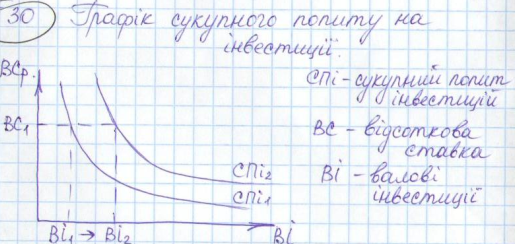 30 Графік сукупного попиту на
інвестиції.
ВСр.
СПі - сукупний попит
інвестицій
ВС1
ВС - відсоткова
ставка
Ві - валові
інвестиції
СПі2
СПі1
Ві1 → Ві2
Ві